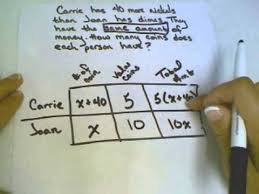 Carrie has 40 more nickels
than Joan has dimes. They
have the same amount of
money. How many coins does
each person have?
# of coin Value coins Total
Carrie x+40 5 5(x+40
Joan x 10 10x